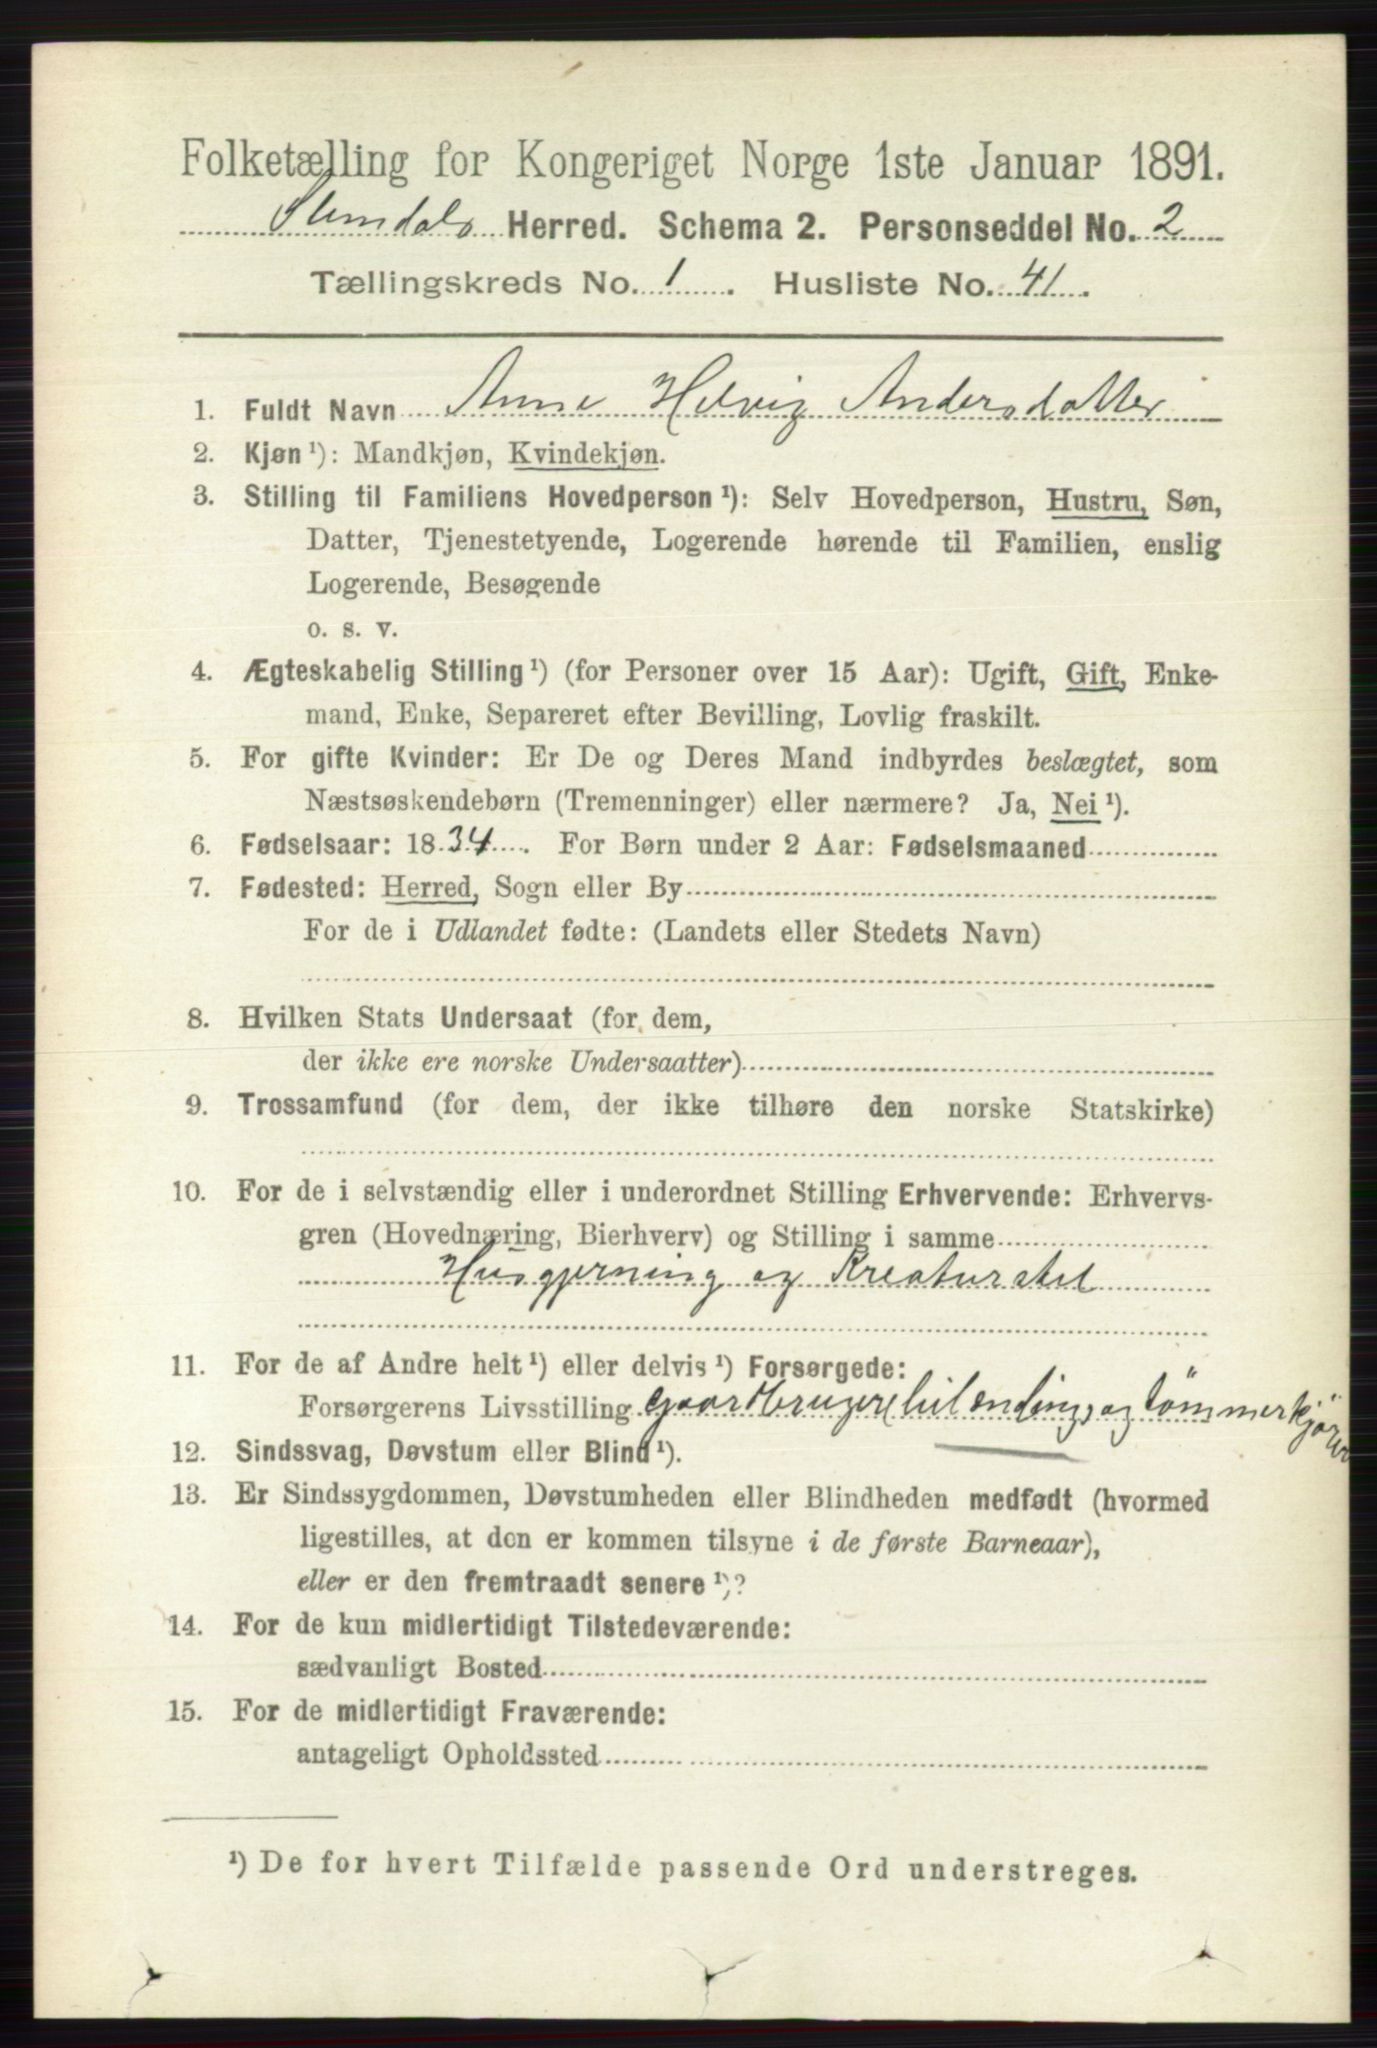 Folketælling for Kongeriget Norge 1ste Januar 1891.
Herred. Schema 2. Personseddel No. 2
Tællingskreds No. 1. Husliste No. 41.
1. Fuldt Navn Anne Helvig Andersdatter
2. Kjøn ¹): Mandkjøn, Kvindekjøn.
3. Stilling til Familiens Hovedperson ¹): Selv Hovedperson, Hustru, Søn,
Datter, Tjenestetyende, Logerende hørende til Familien, enslig
Logerende, Besøgende
o. s. v.
4. Ægteskabelig Stilling ¹) (for Personer over 15 Aar): Ugift, Gift, Enke-
mand, Enke, Separeret efter Bevilling, Lovlig fraskilt.
5. For gifte Kvinder: Er De og Deres Mand indbyrdes beslægtet, som
Næstsøskendebørn (Tremenninger) eller nærmere? Ja, Nei ¹).
6. Fødselsaar: 1834. For Børn under 2 Aar: Fødselsmaaned
7. Fødested: Herred, Sogn eller By
For de i Udlandet fødte: (Landets eller Stedets Navn)
8. Hvilken Stats Undersaat (for dem,
der ikke ere norske Undersaatter)
9. Trossamfund (for dem, der ikke tilhøre den norske Statskirke)
10. For de i selvstændig eller i underordnet Stilling Erhvervende: Erhvervs-
gren (Hovednæring, Bierhverv) og Stilling i samme
Husgjerning og Kreaturstel
11. For de af Andre helt ¹) eller delvis ¹) Forsørgede:
Forsørgerens Livsstilling og tömmerkjörer
12. Sindssvag, Døvstum eller Blind ¹).
13. Er Sindssygdommen, Døvstumheden eller Blindheden medfødt (hvormed
ligestilles, at den er kommen tilsyne i de første Barneaar),
eller er den fremtraadt senere ¹)?
14. For de kun midlertidigt Tilstedeværende:
sædvanligt Bosted
15. For de midlertidigt Fraværende:
antageligt Opholdssted
¹) De for hvert Tilfælde passende Ord understreges.